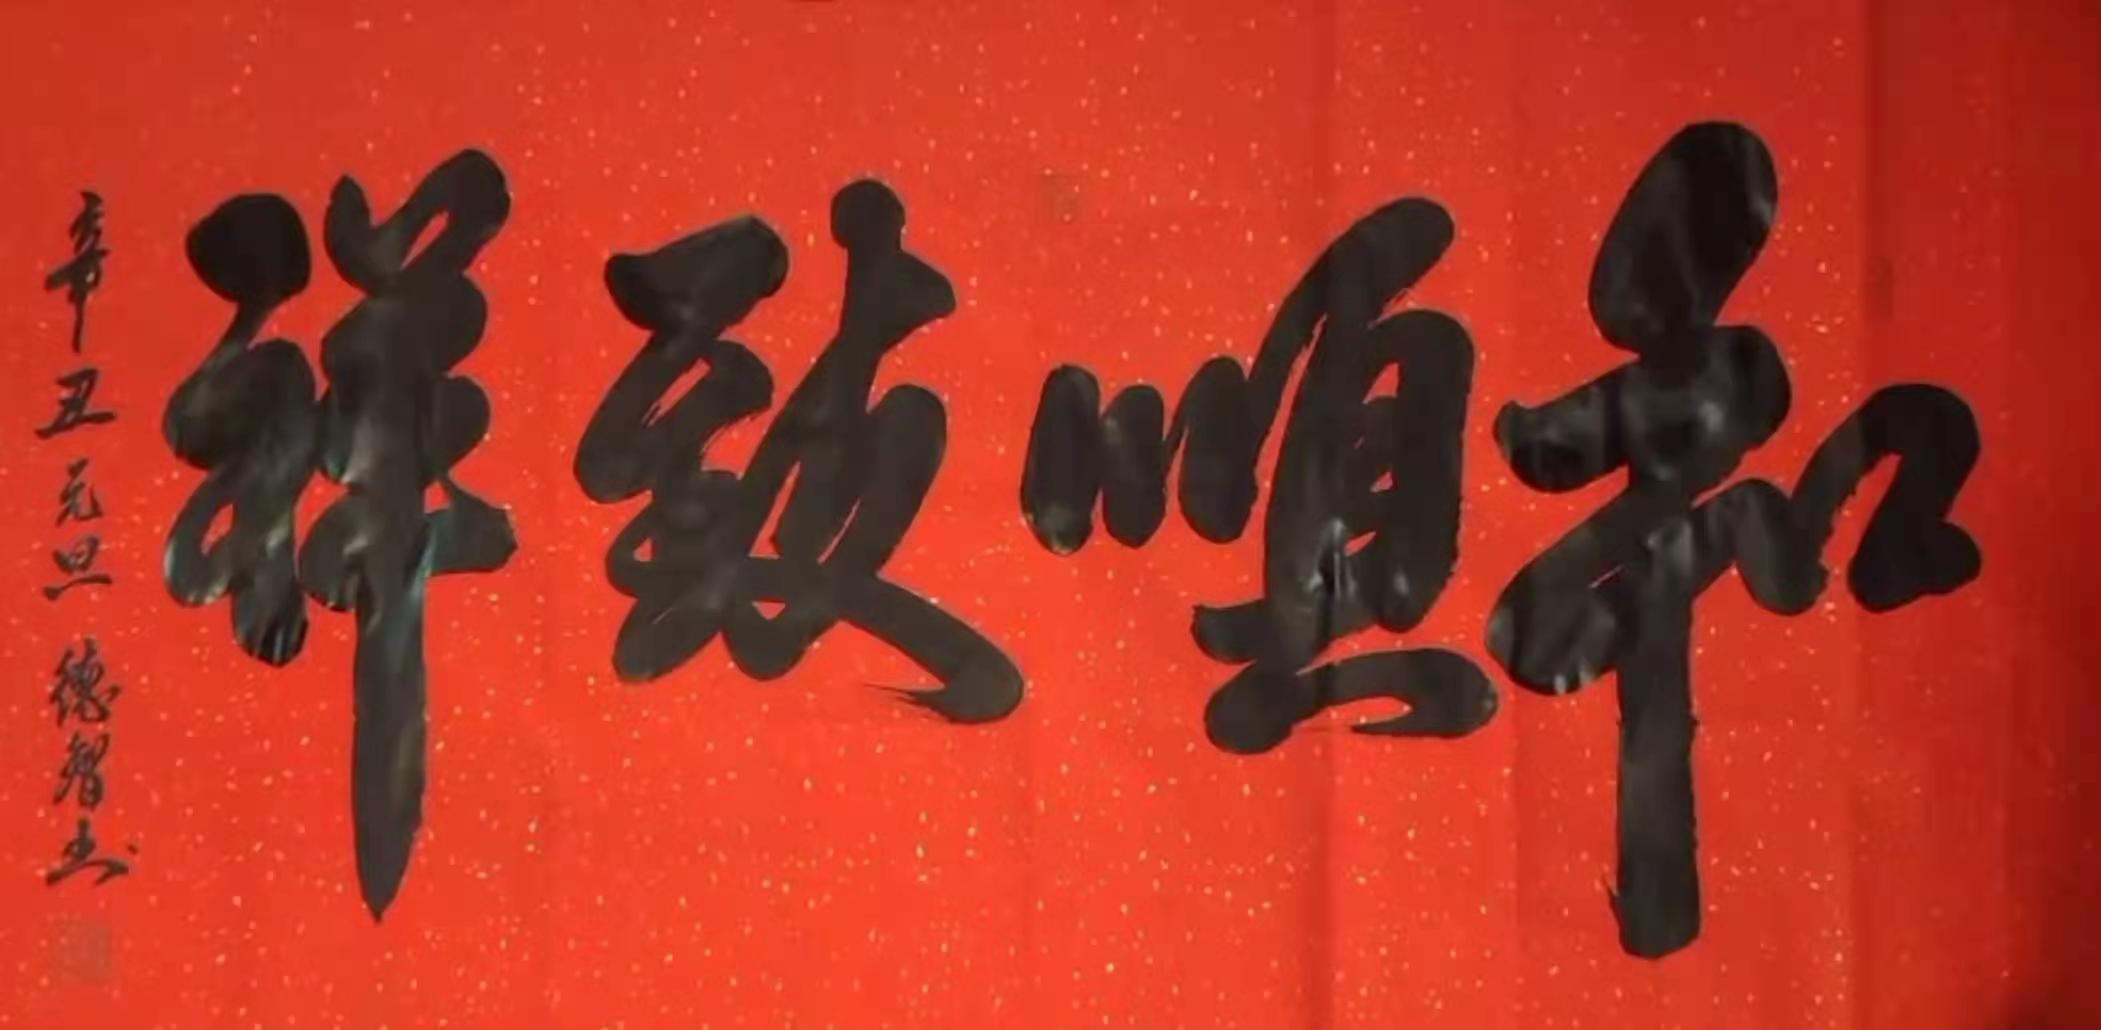 和順致祥
辛丑元旦 德智书